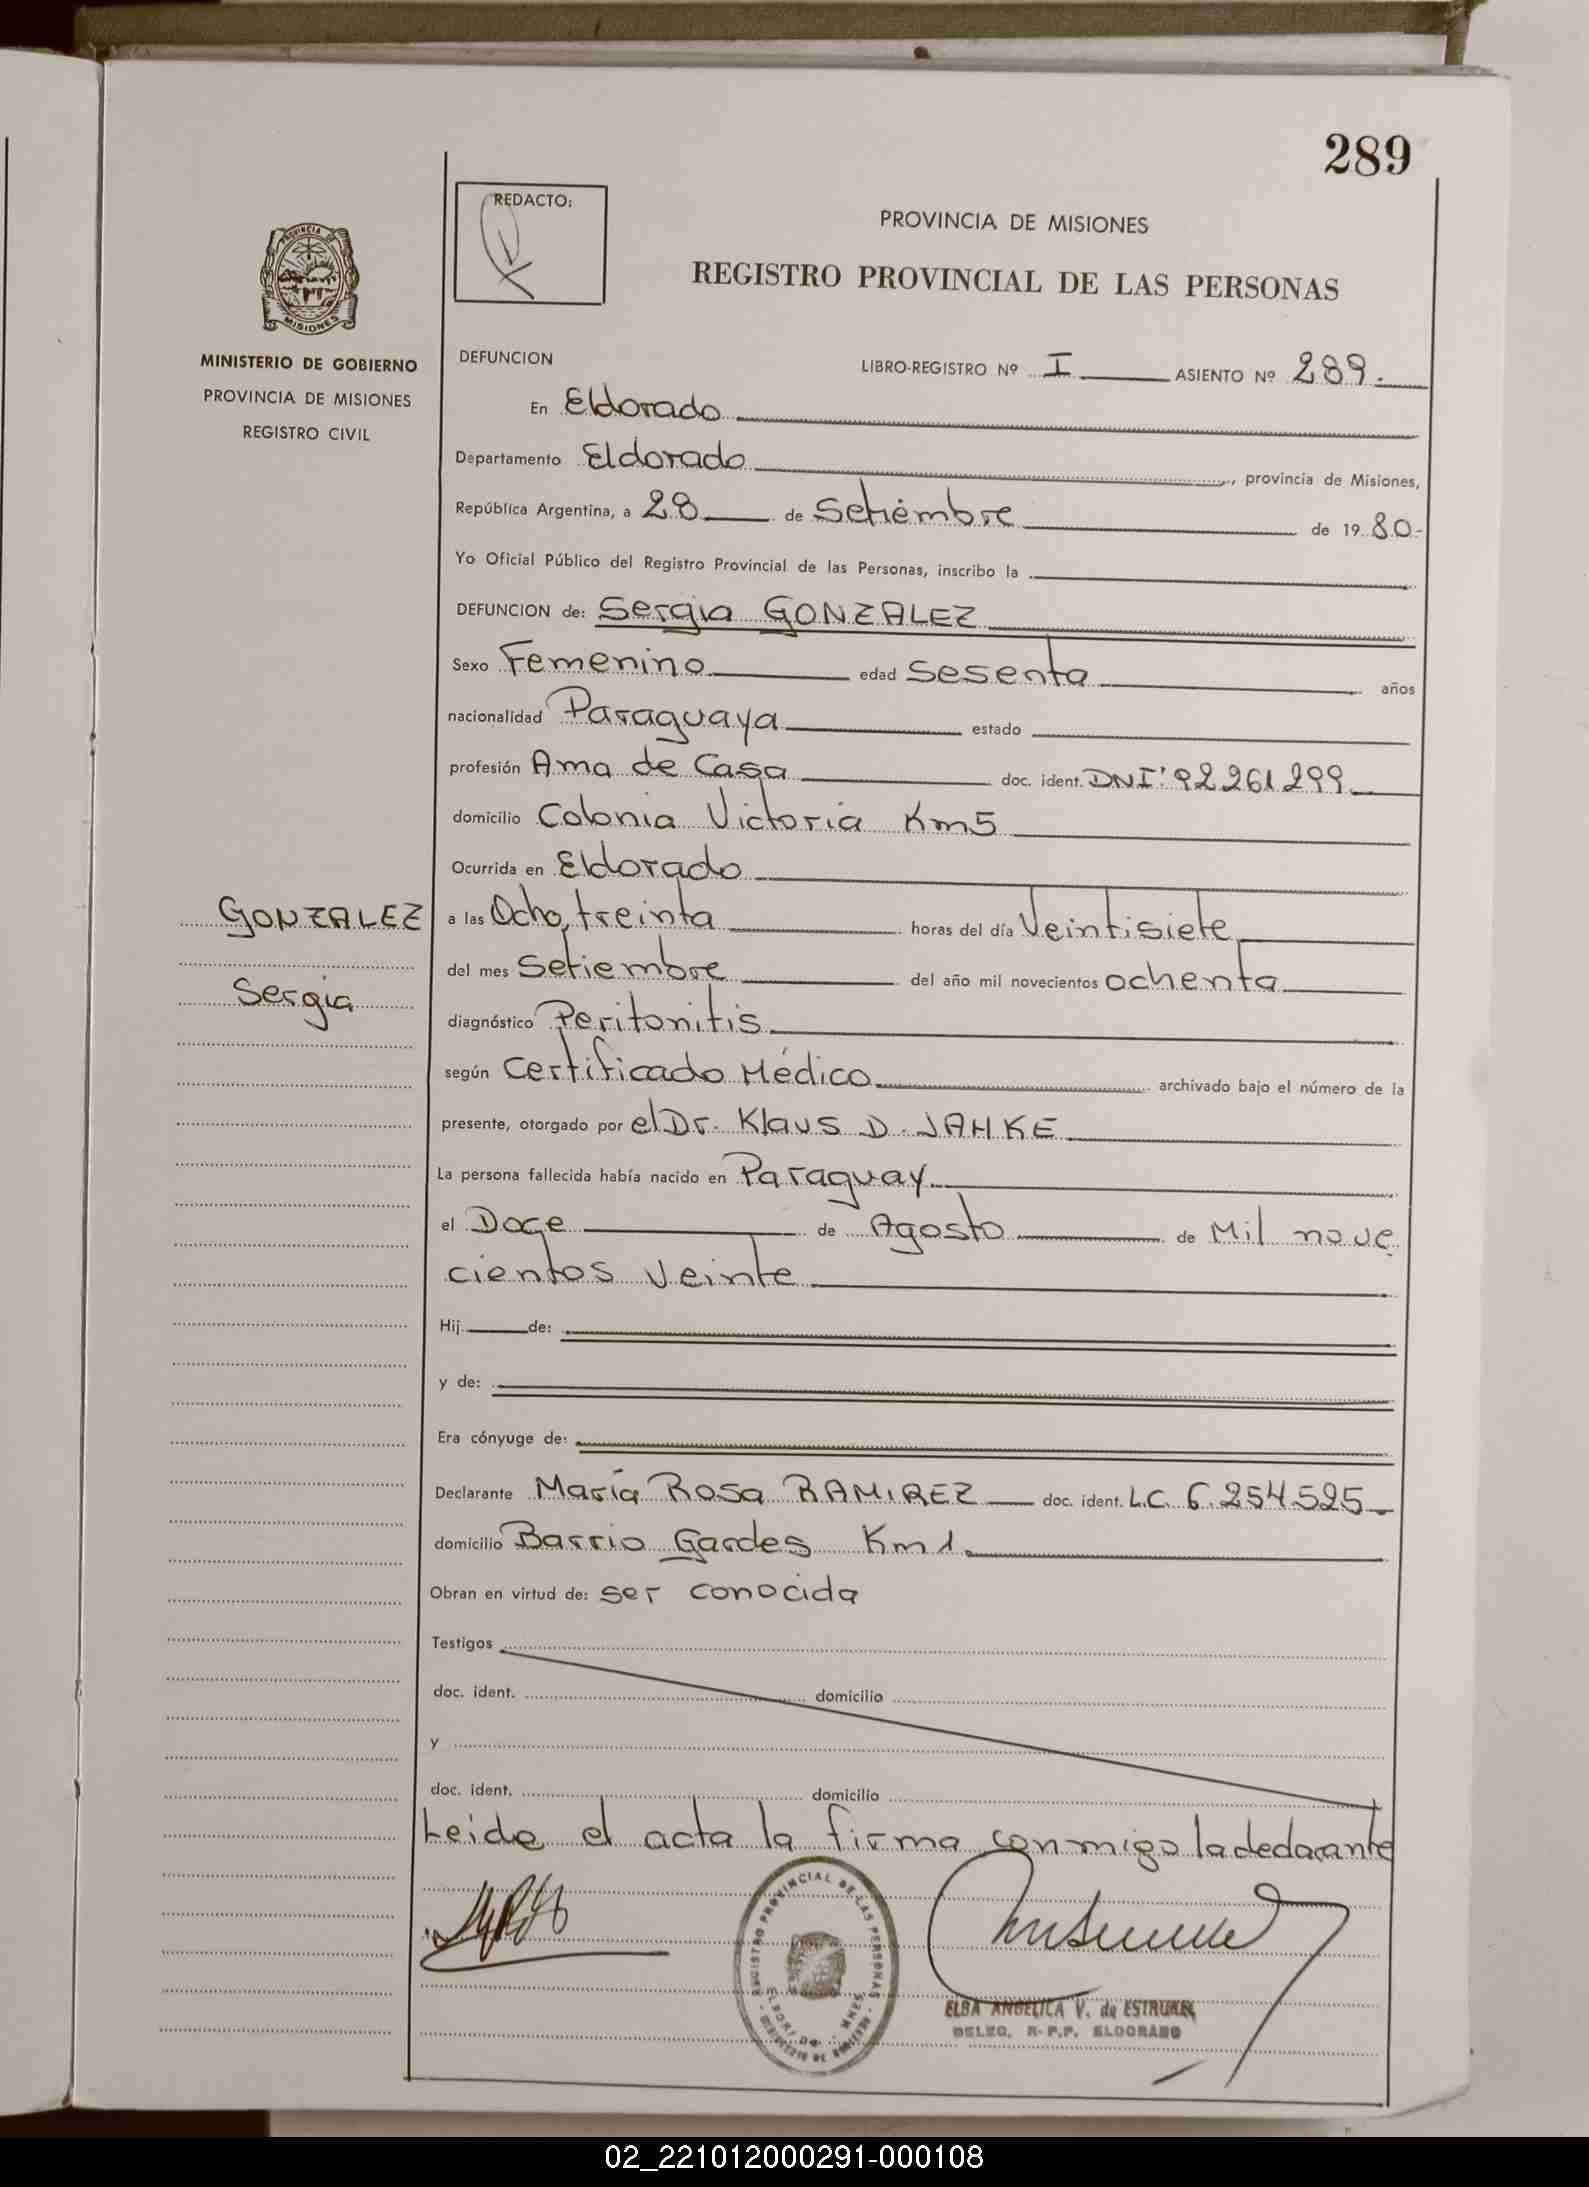 289
REDACTO:
PROVINCIA DE MISIONES
REGISTRO PROVINCIAL DE LAS PERSONAS
PROVINCIA DE
MISIONES
MINISTERIO DE GOBIERNO
PROVINCIA DE MISIONES
REGISTRO CIVIL
DEFUNCION LIBRO-REGISTRO Nº I ASIENTO Nº 289.
En Eldorado
Departamento Eldorado, provincia de Misiones,
República Argentina, a 28 de Setiembre de 19 80.-
Yo Oficial Público del Registro Provincial de las Personas, inscribo la
DEFUNCION de: Sergia GONZALEZ
Sexo Femenino edad Sesenta años
nacionalidad Paraguaya estado
profesión Ama de Casa doc. ident. DNI: 92261299
domicilio Colonia Victoria Km5
Ocurrida en Eldorado
GONZALEZ
Sergia
a las Ocho, treinta horas del día Veintisiete
del mes Setiembre del año mil novecientos ochenta
diagnóstico Peritonitis
según Certificado Médico archivado bajo el número de la
presente, otorgado por el Dr. Klaus D. JAHKE
La persona fallecida había nacido en Paraguay
el Doce de Agosto de Mil nove
cientos veinte
Hij de:
y de:
Era cónyuge de:
Declarante María Rosa RAMIREZ doc. ident. L.C. 6.254.525
domicilio Barrio Gardes Km1.
Obran en virtud de: ser conocida
Testigos
doc. ident. domicilio
y
doc. ident. domicilio
Leida el acta la firma conmigo la declarante
REGISTRO PROVINCIAL DE LAS PERSONAS
ELBA ANGELICA V. de
DELEG. R.P.P. ELDORADO
02_221012000291-000108